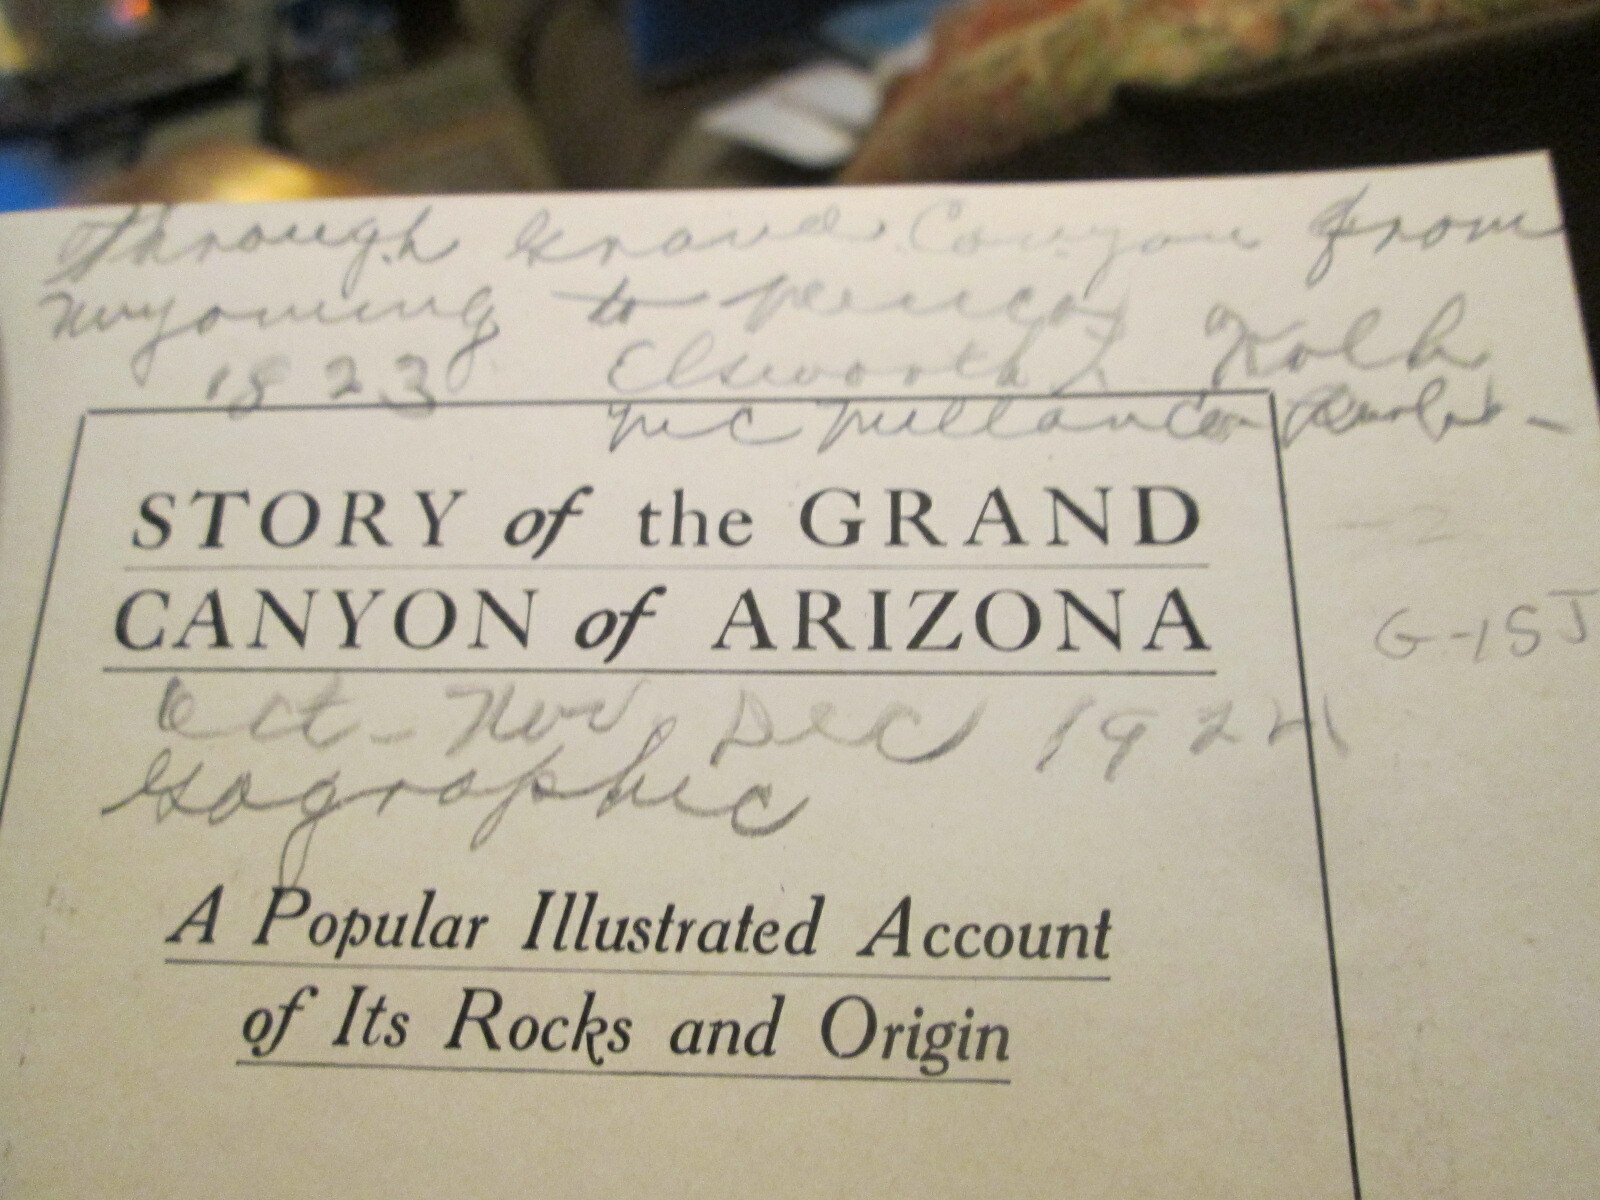 Through Grand Canyon from
Wyoming to Mexico
1823 Elsworth L Kolb
McMillan Co Publi-
STORY of the GRAND
CANYON of ARIZONA
G-15J
Oct - Nov, Dec 1924
Gographic
A Popular Illustrated Account
of Its Rocks and Origin